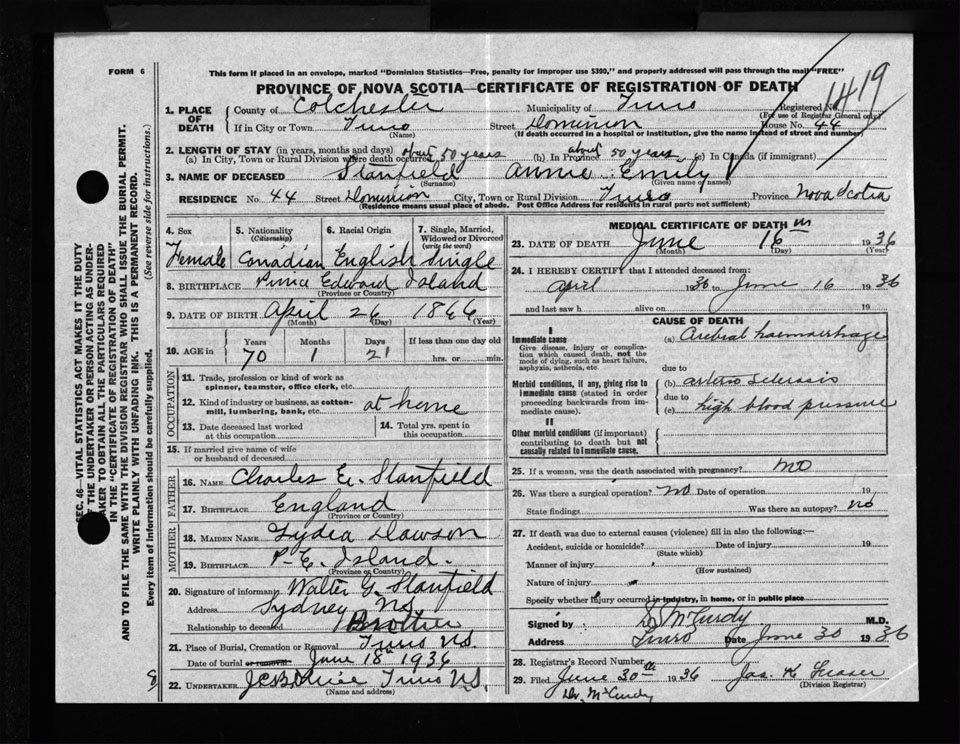 FORM 6
This form if placed in an envelope, marked "Dominion Statistics—Free, penalty for improper use $300," and properly addressed will pass through the mail "FREE"
PROVINCE OF NOVA SCOTIA—CERTIFICATE OF REGISTRATION OF DEATH
1419
1. PLACE OF DEATH
County of Colchester Municipality of Truro Registered No.
(For use of Registrar General only)
If in City or Town Truro Street Dominion House No. 44
(Name) (If death occurred in a hospital or institution, give the name instead of street and number)
2. LENGTH OF STAY (in years, months and days)
(a) In City, Town or Rural Division where death occurred about 50 years (b) In Province about 50 years (c) In Canada (if immigrant)
3. NAME OF DECEASED Stanfield Annie Emily
(Surname) (Given name or names)
RESIDENCE No. 44 Street Dominion City, Town or Rural Division Truro Province Nova Scotia
(Residence means usual place of abode. Post Office Address for residents in rural parts not sufficient)
4. Sex 5. Nationality (Citizenship) 6. Racial Origin 7. Single, Married, Widowed or Divorced (write the word)
Female Canadian English Single
8. BIRTHPLACE Prince Edward Island
(Province or Country)
9. DATE OF BIRTH April 26 1866
(Month) (Day) (Year)
10. AGE in Years Months Days If less than one day old
70 1 21 hrs. or min.
OCCUPATION
11. Trade, profession or kind of work as spinner, teamster, office clerk, etc.
12. Kind of industry or business, as cotton-mill, lumbering, bank, etc. at home
13. Date deceased last worked at this occupation 14. Total yrs. spent in this occupation
15. If married give name of wife or husband of deceased
FATHER
16. NAME Charles E. Stanfield
17. BIRTHPLACE England
(Province or Country)
MOTHER
18. MAIDEN NAME Lydia Dawson
19. BIRTHPLACE P. E. Island.
(Province or Country)
20. Signature of informant Walter G. Stanfield
Address Sydney N.S.
Relationship to deceased Brother
21. Place of Burial, Cremation or Removal Truro N.S.
Date of burial or removal June 18th 1936
22. UNDERTAKER Truro N.S.
(Name and address)
MEDICAL CERTIFICATE OF DEATH
23. DATE OF DEATH June 16th 1936
(Month) (Day) (Year)
24. I HEREBY CERTIFY that I attended deceased from:
April 1936 to June 16 1936
and last saw h alive on 19
CAUSE OF DEATH
I
Immediate cause
Give disease, injury or complication which caused death, not the mode of dying, such as heart failure, asphyxia, asthenia, etc.
(a) Cerebral haemorrhage
due to
Morbid conditions, if any, giving rise to immediate cause (stated in order proceeding backwards from immediate cause).
(b) arterio sclerosis
due to
(c) high blood pressure
II
Other morbid conditions (if important) contributing to death but not causally related to immediate cause.
25. If a woman, was the death associated with pregnancy? no
26. Was there a surgical operation? no Date of operation 19
State findings Was there an autopsy? no
27. If death was due to external causes (violence) fill in also the following:—
Accident, suicide or homicide? Date of injury 19
(State which)
Manner of injury
(How sustained)
Nature of injury
Specify whether injury occurred in industry, in home, or in public place
Signed by McCurdy M.D.
Address Truro Date June 30 1936
28. Registrar's Record Number
29. Filed June 30th 1936
(Division Registrar)
Dr. McCurdy
SEC. 46—VITAL STATISTICS ACT MAKES IT THE DUTY
OF THE UNDERTAKER OR PERSON ACTING AS UNDER-
TAKER TO OBTAIN ALL THE PARTICULARS REQUIRED
IN THE "CERTIFICATE OF REGISTRATION OF DEATH"
AND TO FILE THE SAME WITH THE DIVISION REGISTRAR WHO SHALL ISSUE THE BURIAL PERMIT.
WRITE PLAINLY WITH UNFADING INK. THIS IS A PERMANENT RECORD.
Every item of information should be carefully supplied. (See reverse side for instructions.)